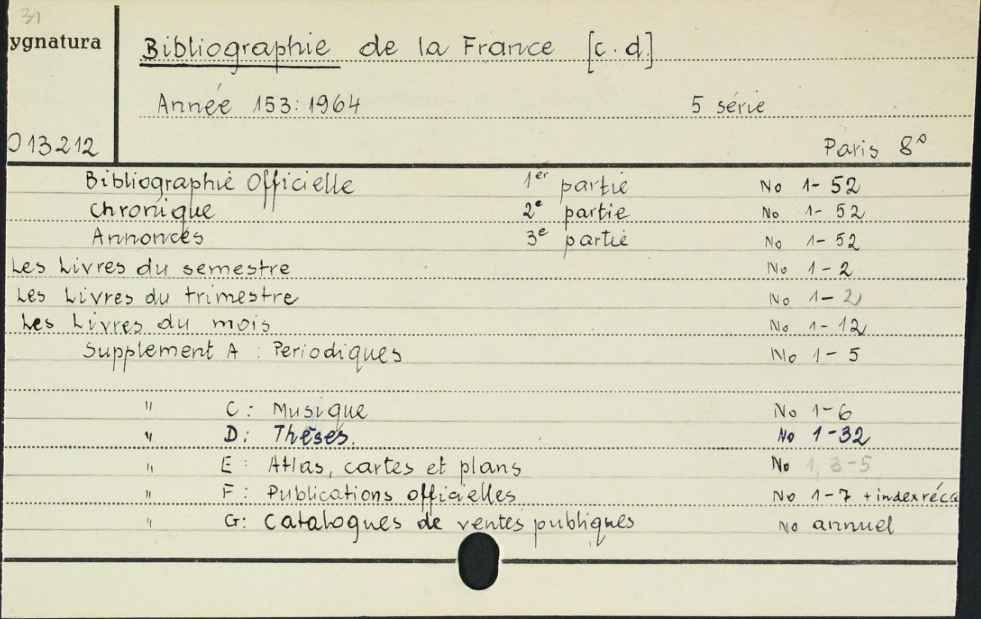 31
ygnatura
Bibliographie de la France [c.d.]
Année 153:1964 5 série
013212 Paris 8°
Bibliographie Officielle 1er partie No 1-52
Chronique 2e partie No 1-52
Annonces 3e partie No 1-52
Les Livres du semestre No 1-2
Les Livres du trimestre No 1-2
Les Livres du mois No 1-12
Supplement A : Periodiques No 1-5
" C: Musique No 1-6
" D: Thèses. No 1-32
" E: Atlas, cartes et plans No 1, 3-5
" F: Publications officielles No 1-7 + index réca
" G: Catalogues de ventes publiques No annuel